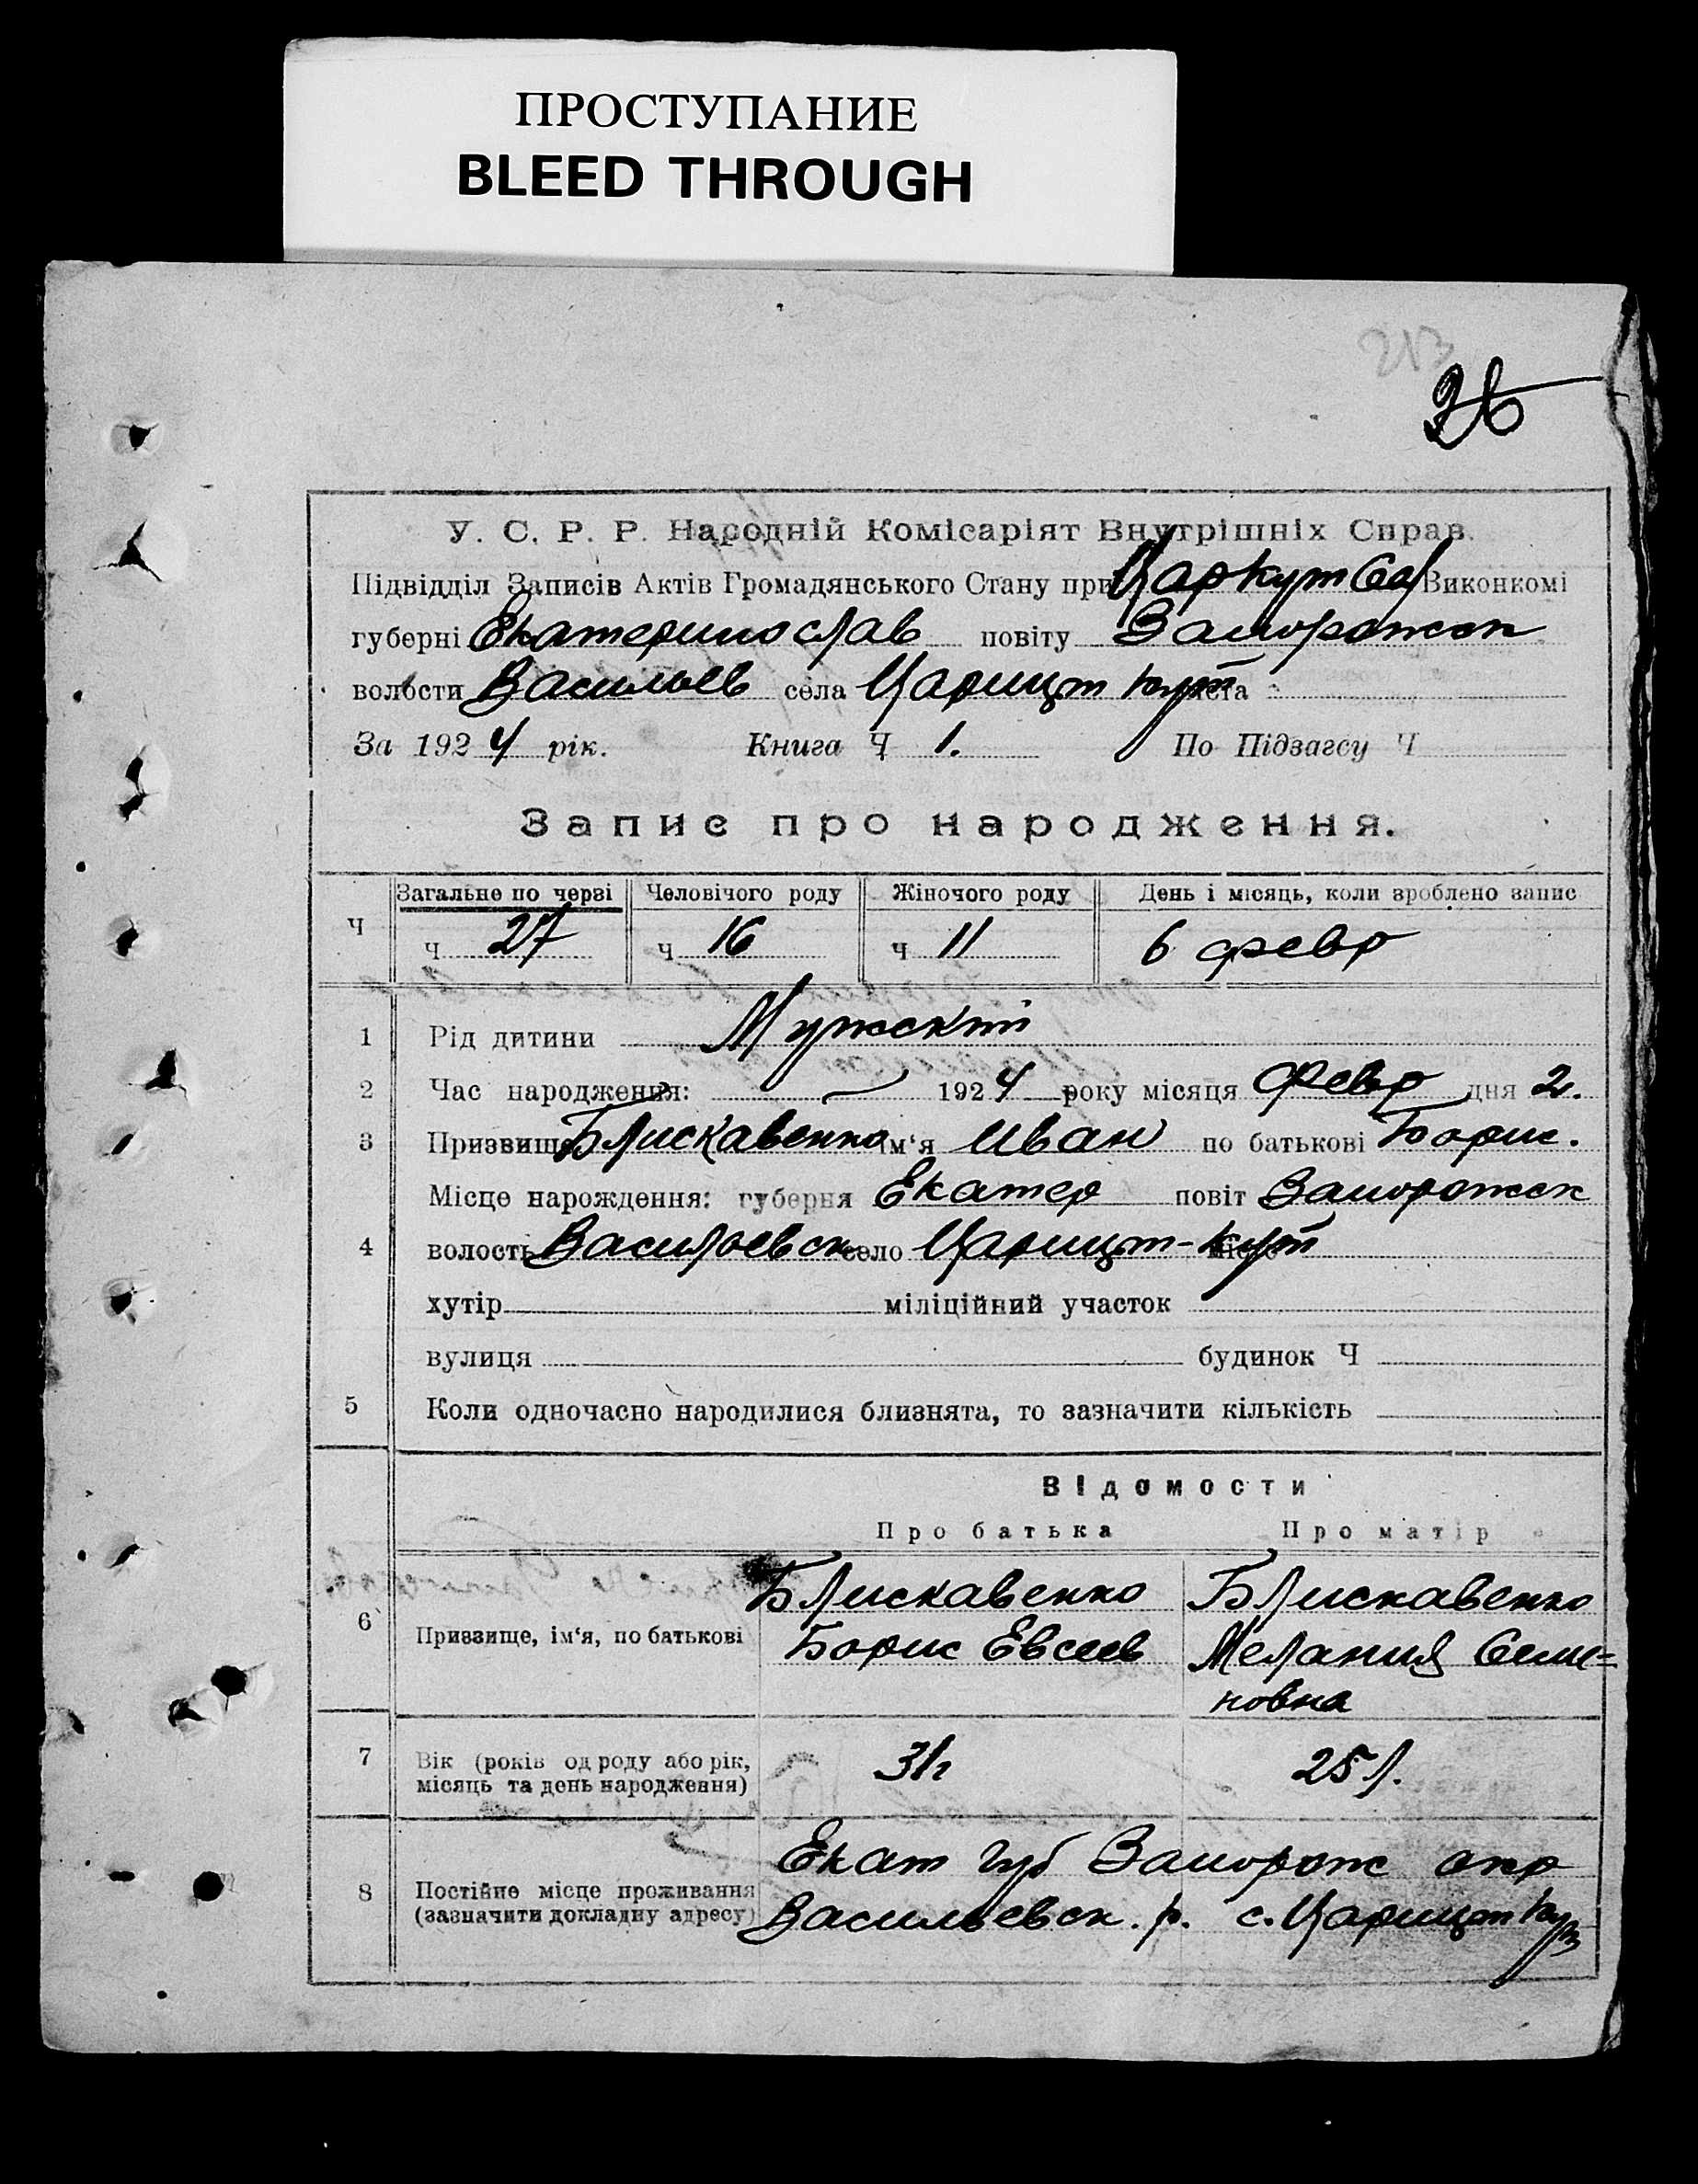 ПРОСТУПАНИЕ
BLEED THROUGH
213
26
У. С. Р. Р. Народній Комісаріят Внутрішніх Справ.
Підвідділ Записів Актів Громадянського Стану при Царкут Виконкомі
губерні Екатеринослав повіту Запорожск
волости Васильев села Царицт Кут
За 1924 рік. Книга Ч 1. По Підзагсу Ч
Запис про народження.
Ч Загальне по черзі Человічого роду Жіночого роду День і місяць, коли зроблено запис
ч 27 ч 16 ч 11 6 февр
1 Рід дитини Мужскт
2 Час народження: 1924 року місяця Февр дня 2.
3 Призвище Блискавенко ім‘я Иван по батькові Борис.
Місце нарождення: губерня Екатер повіт Запорожск
4 волость Васильевск село Царицт-Кут місто
хутір міліційний участок
вулиця будинок Ч
5 Коли одночасно народилися близнята, то зазначити кількість
Відомости
Про батька Про матір
Блискавенко Блискавенко
6 Призвище, ім‘я, по батькові Борис Евсеев Мелания Семе-
новна
7 Вік (років од роду або рік, 31г 25 л.
місяць та день народження)
Екат губ Запорож окр
8 Постійне місце проживання
(зазначити докладну адресу) Васильевск. р. с. Царицт Кут